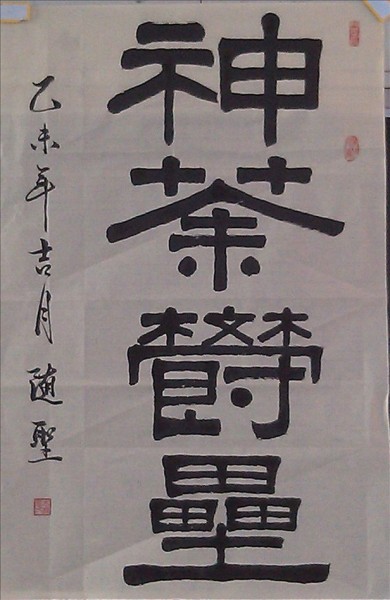 神荼欝壘
乙未年吉月随聖